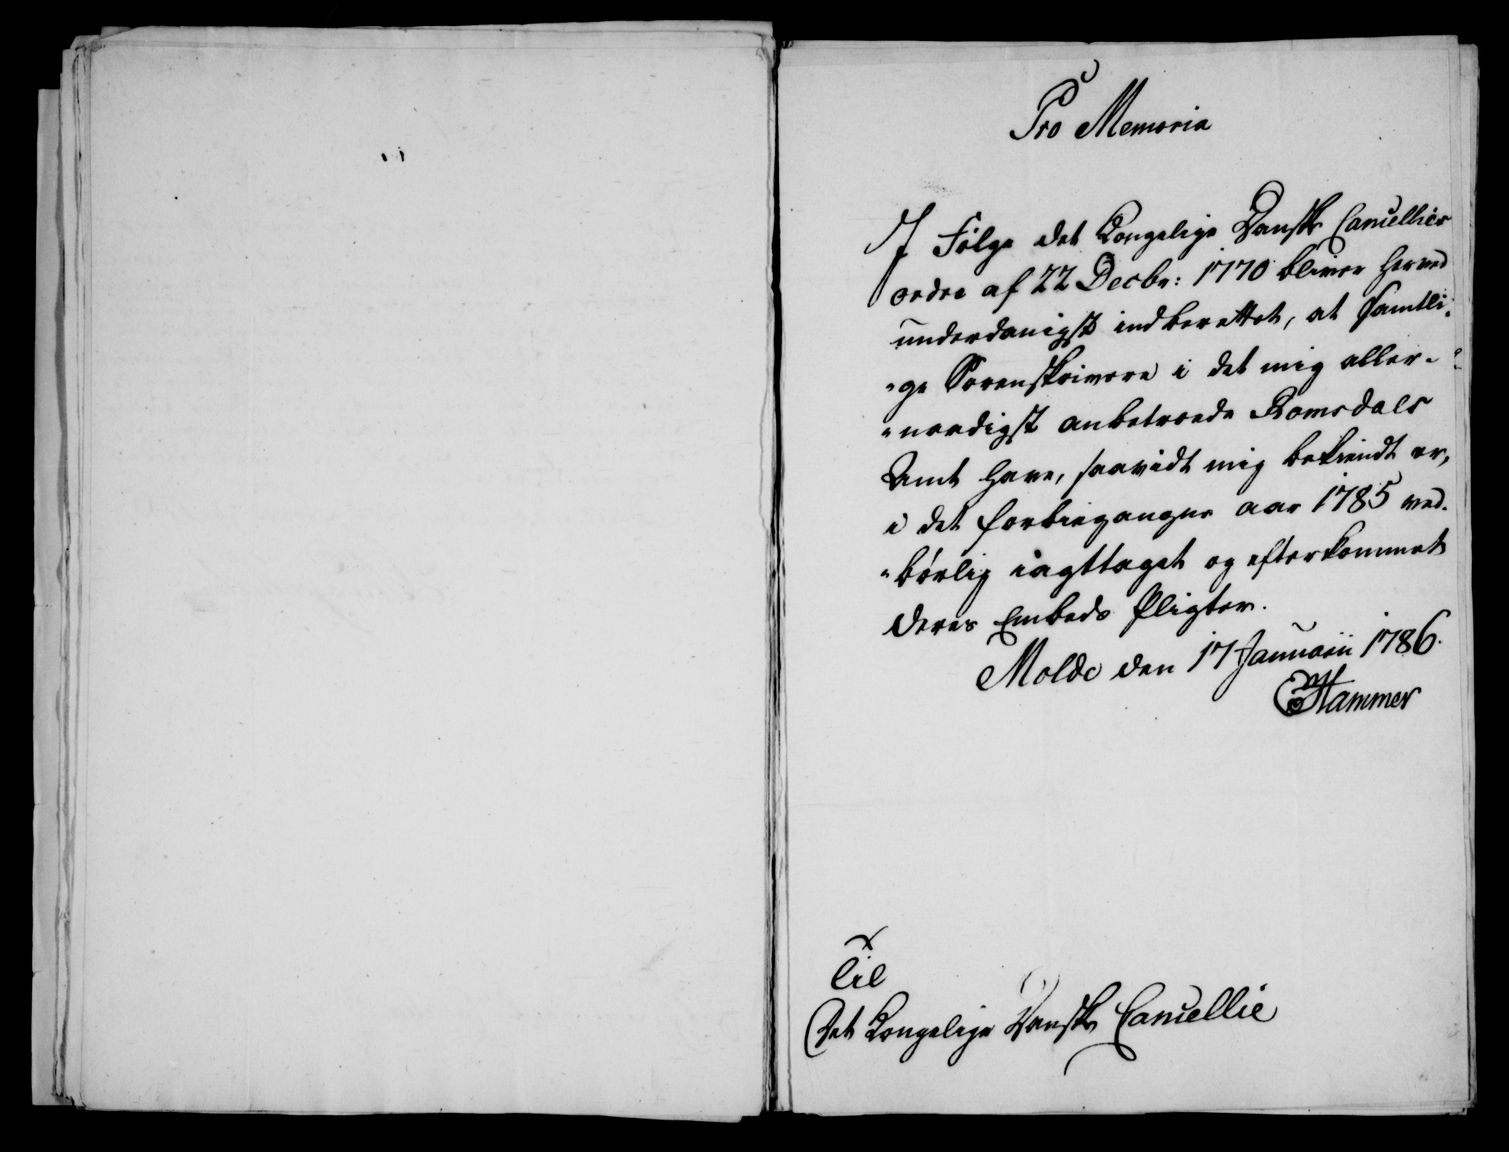 Pro Memoria
J Følge det Kongelige Danske Cancellies
ordre af 22 Decbr: 1770 bliver herved
underdanigst indberettet, at samtli-
-ge Sorenskrivere i det mig aller-
-naadigst anbetroede Romsdals
Amt have, saavidt mig bekiendt er,
i det forbiegangne aar 1785 ved-
-børlig iagttaget og efterkommet
deres Embeds Pligter.
Molde den 17 Januarii 1786.
Hammer
Til
Det Kongelige Danske Cancellie